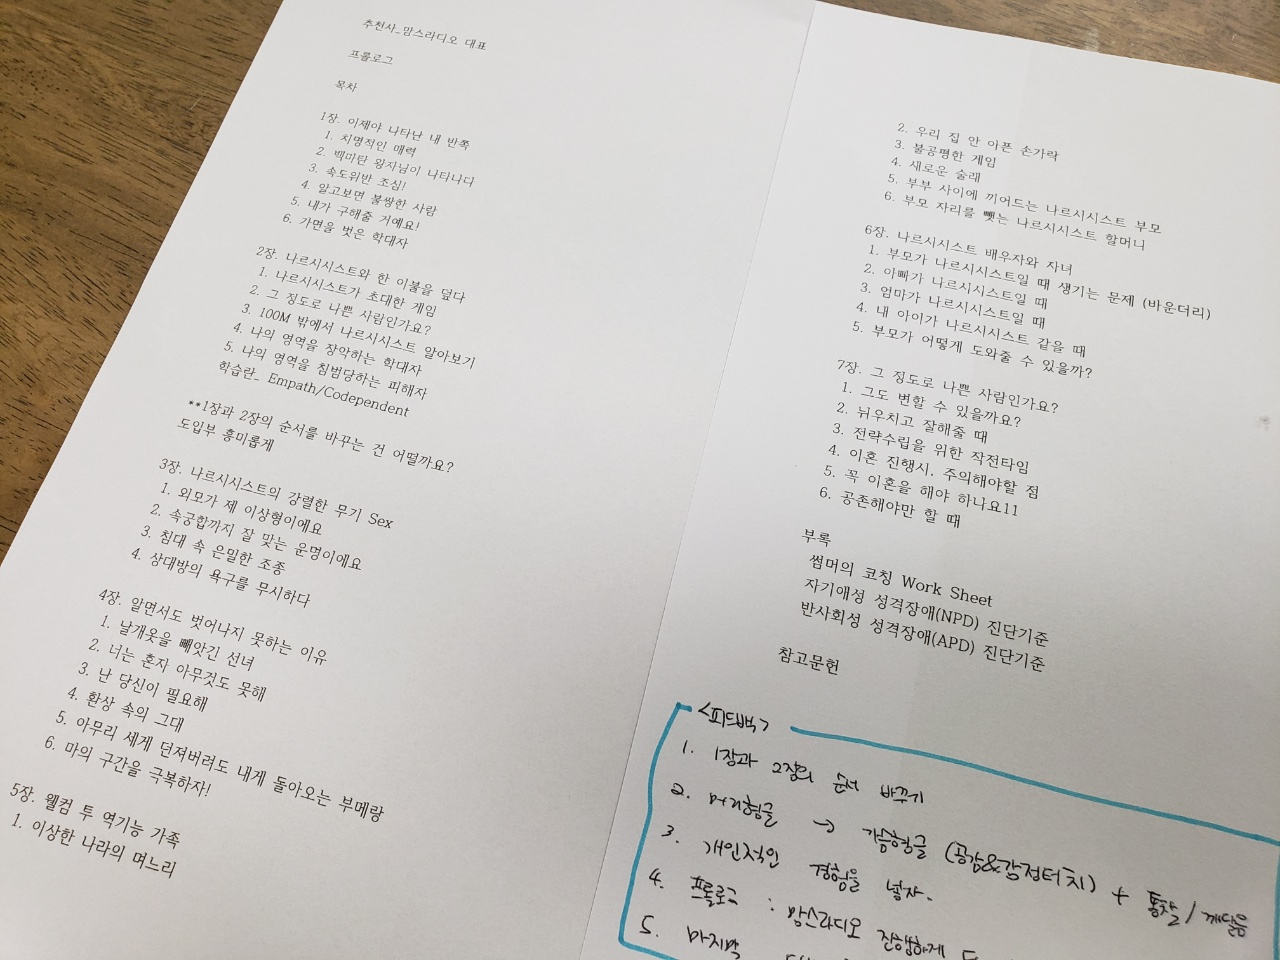 추천사_맘스라디오 대표
프롤로그
목차
1장. 이제야 나타난 내 반쪽
1. 치명적인 매력
2. 백마탄 왕자님이 나타나디
3. 속도위반 조심!
4. 알고보면 불쌍한 사람
5. 내가 구해줄 거예요!
6. 가면을 벗은 학대자
2장. 나르시시스트와 한 이불을 덮다
1. 나르시시스트가 초대한 게임
2. 그 정도로 나쁜 사람인가요?
3. 100M 밖에서 나르시시스트 알아보기
4. 나의 영역을 장악하는 학대자
5. 나의 영역을 침범당하는 피해자
학습란_ Empath/Codependent
**1장과 2장의 순서를 바꾸는 건 어떨까요?
도입부 흥미롭게
3장. 나르시시스트의 강렬한 무기 Sex
1. 외모가 제 이상형이에요
2. 속궁합까지 잘 맞는 운명이에요
3. 침대 속 은밀한 조종
4. 상대방의 욕구를 무시하다
4장. 알면서도 벗어나지 못하는 이유
1. 날개옷을 빼앗긴 선녀
2. 너는 혼자 아무것도 못해
3. 난 당신이 필요해
4. 환상 속의 그대
5. 아무리 세게 던져버려도 내게 돌아오는 부메랑
6. 마의 구간을 극복하자!
5장. 웰컴 투 역기능 가족
1. 이상한 나라의 며느리
2. 우리 집 안 아픈 손가락
3. 불공평한 게임
4. 새로운 술래
5. 부부 사이에 끼어드는 나르시시스트 부모
6. 부모 자리를 뺏는 나르시시스트 할머니
6장. 나르시시스트 배우자와 자녀
1. 부모가 나르시시스트일 때 생기는 문제 (바운더리)
2. 아빠가 나르시시스트일 때
3. 엄마가 나르시시스트일 때
4. 내 아이가 나르시시스트 같을 때
5. 부모가 어떻게 도와줄 수 있을까?
7장. 그 정도로 나쁜 사람인가요?
1. 그도 변할 수 있을까요?
2. 뉘우치고 잘해줄 때
3. 전략수립을 위한 작전타임
4. 이혼 진행시. 주의해야할 점
5. 꼭 이혼을 해야 하나요11
6. 공존해야만 할 때
부록
썸머의 코칭 Work Sheet
자기애성 성격장애(NPD) 진단기준
반사회성 성격장애(APD) 진단기준
참고문헌
<피드백>
1. 1장과 2장의 순서 바꾸기
2. 머리형글 → 가슴형글 (공감&감정터치) + 통찰/깨달음
3. 개인적인 경험을 넣자.
4. 프롤로그 : 맘스라디오 진행하게
5. 마지막